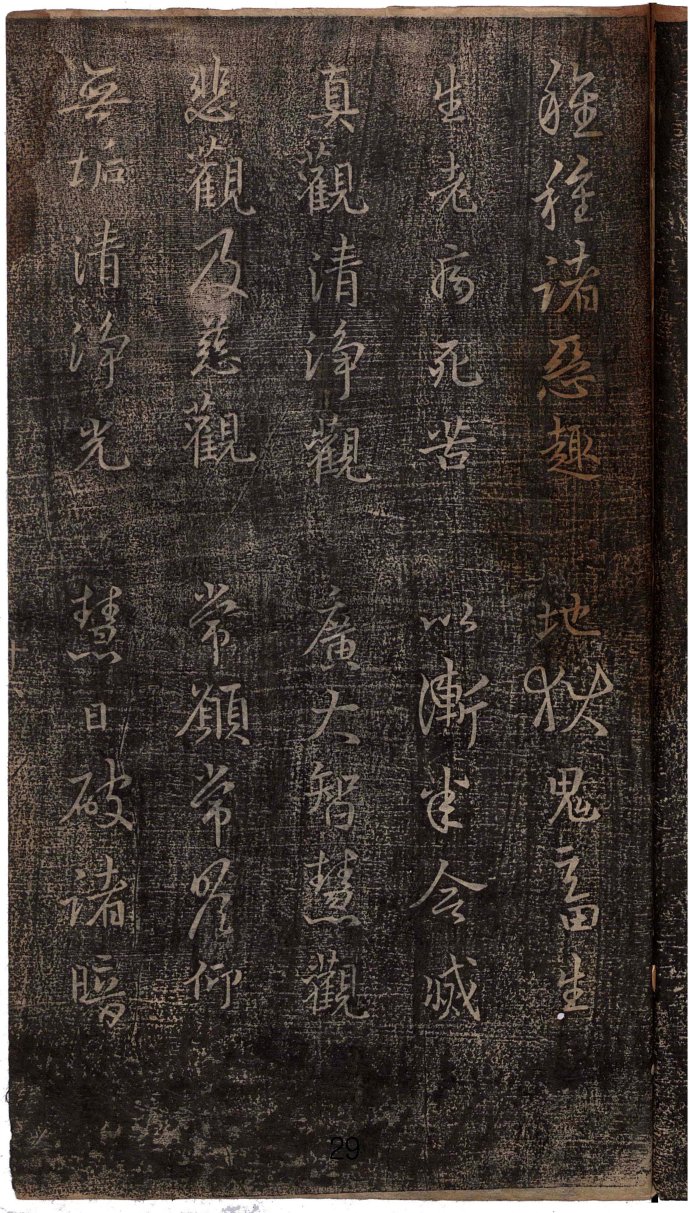 種種諸惡趣 地獄鬼畜生
生老病死苦 以漸悉令滅
真觀清淨觀 廣大智慧觀
悲觀及慈觀 常願常瞻仰
無垢清淨光 慧日破諸暗
29